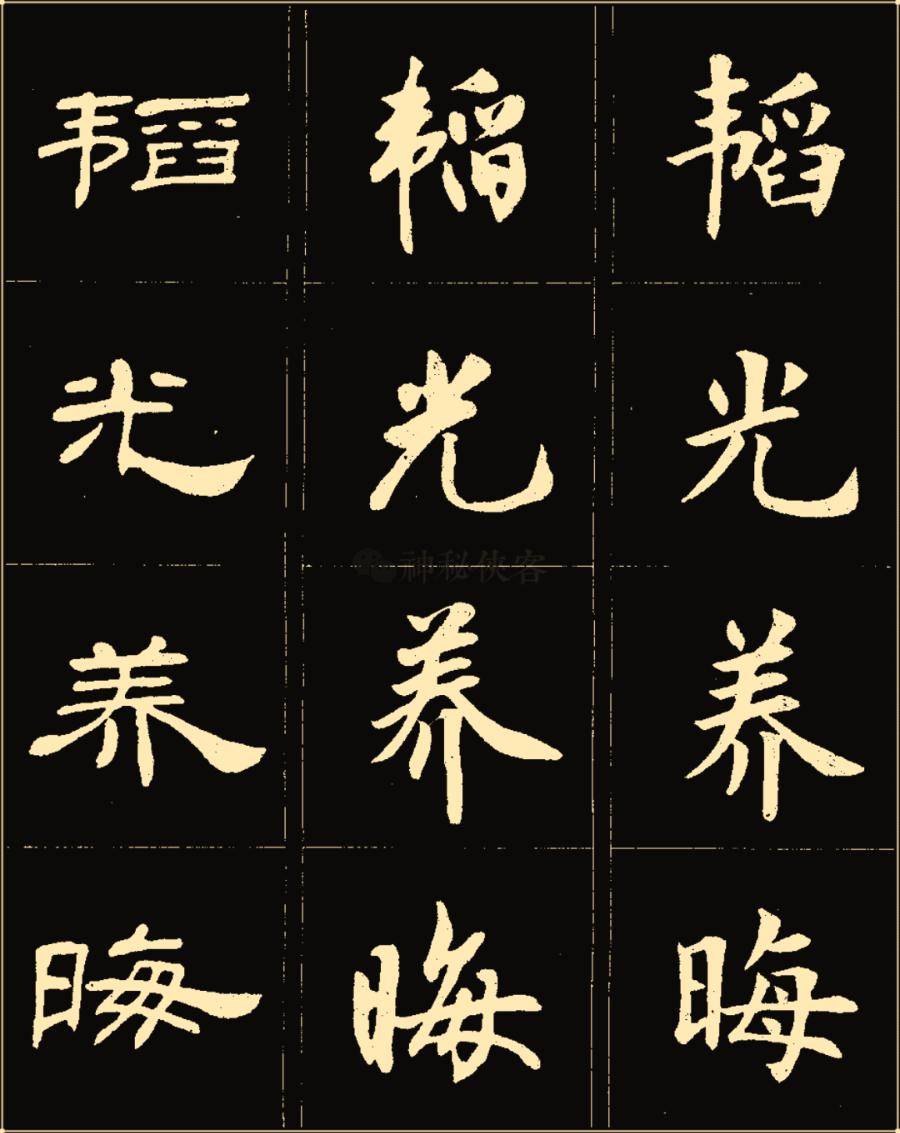 韬韬韬
光光光
养养养
神秘侠客
晦晦晦